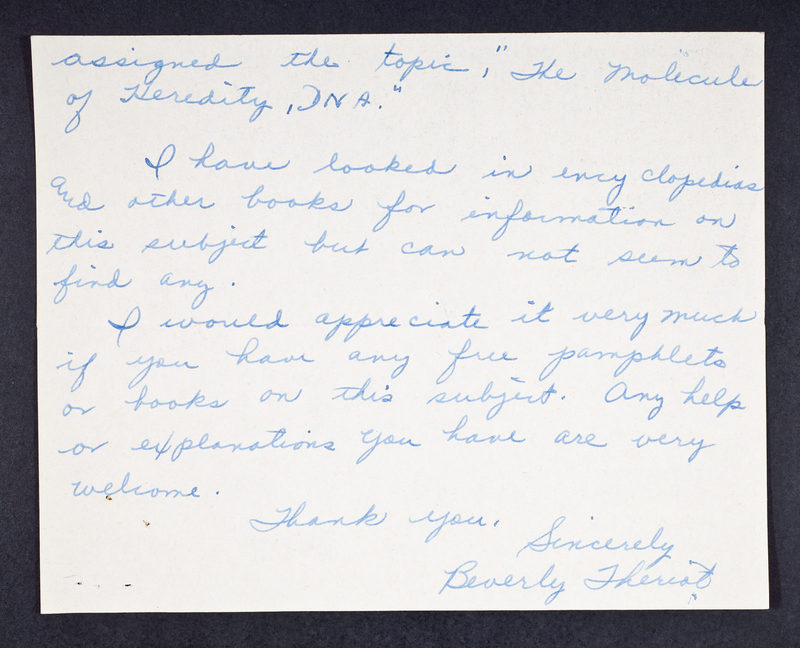 assigned the topic, "The Molecule
of Heredity, DNA."
I have looked in encyclopedias
and other books for information on
this subject but can not seem to
find any.
I would appreciate it very much
if you have any free pamphlets
or books on this subject. Any help
or explanations you have are very
welcome.
Thank you.
Sincerely
Beverly Theriot